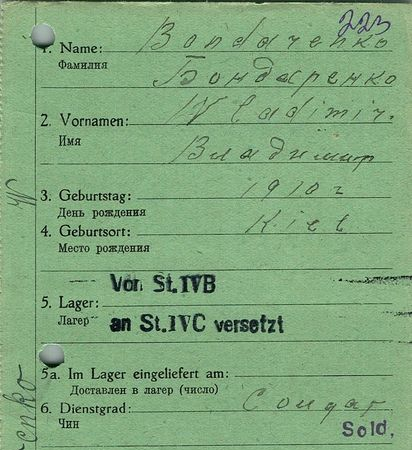 223
1. Name: Bondarenko
Фамилия Бондаренко
2. Vornamen: Wladimir.
Имя Владимир
3. Geburtstag: 1910 г
День рождения
4. Geburtsort: Kiev
Место рождения
Von St.IVB
5. Lager:
Лагер an St.IVC versetzt
5a. Im Lager eingeliefert am:
Доставлен в лагер (число)
6. Dienstgrad: Солдат
Чин Sold.
enko